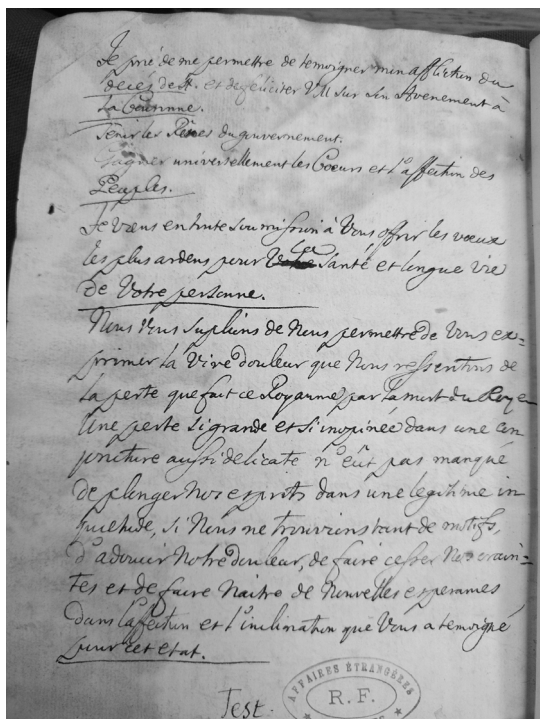 Je prié de me permettre de temoigner mon affliction du
deces de St. et de feliciter V.M sur son Avenement à
La Couronne.
Tenir les Rênes du gouvernement.
Gaigner universellement les Coeurs et l'affection des
Peuples.
Je viens en toute soumission à Vous offrir les voeux
les plus ardens pour la Santé et longue vie
de Votre personne.
Nous Vous suplions de Nous permettre de Vous ex=
primer la Vive douleur que Nous ressentons de
la perte que fait ce Royaume par la mort du Roy
Une perte si grande et si inopinée dans une con
joncture aussi delicate n'eût pas manqué
de plonger Nos esprits dans une legitime in
quietude, si Nous ne trouvions tant de motifs,
d'adoucir Notre douleur, de faire cesser Nos crain=
tes et de faire Naitre de Nouvelles esperances
dans l'afection et l'inclination que Vous a temoigné
pour cet etat.
Test.
AFFAIRES ÉTRANGÈRES
R.F.